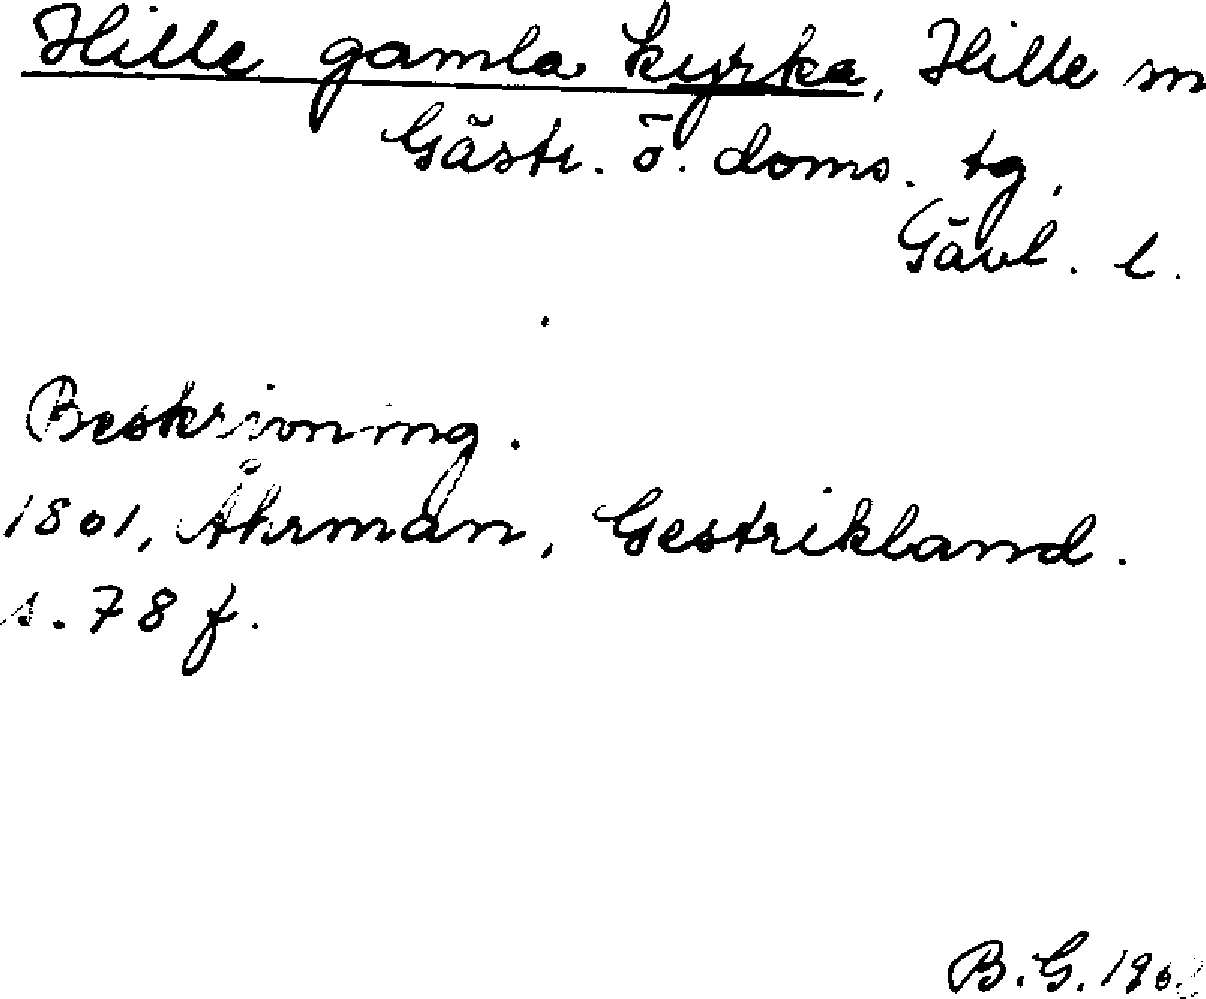 Hille gamla kyrka, Hille sn
Gästr. ö. doms. tg,
Gävl. l.
Beskrivning.
1801, Åhrman, Gestrikland.
s. 78 f.
B.G.